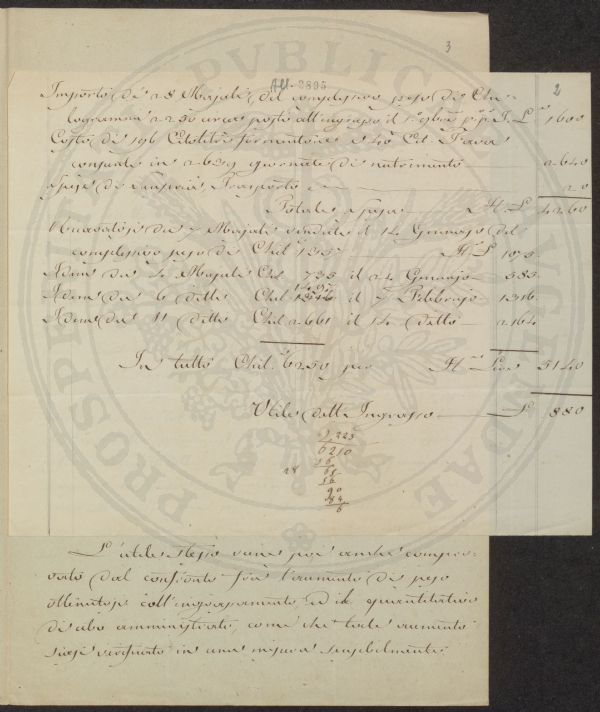 3
AU. 2895
2
Importo de' 28 Majali del complessivo peso di Chi-
logrammi 2250 circa posti all'ingrasso il 1° L. 1600
Costo di 196 Ettolitri formentone e 40 Ett. Fava
consunti in 2639 giornate di nutrimento 2640
Spese di Trasporto 20
Totale Spesa It. L. 4260
Ricavatosi da 7 Majali venduti il 14 Gennajo del
complessivo peso di Chil. 1357 It. L. 1075
Idem da 4 Majali Chil. 735 il 24 Gennajo 585
Idem da 6 detti Chil. 1497 il 7 Febbrajo 1316
Idem da 11 detti Chil. 2661 il 14 detto 2164
In tutto Chil. 6250 per It. Lire 5140
Utile dell'Ingrasso L. 880
1,225
6210
28
56
65
56
90
84
6
L'utile stesso viene poi anche compro-
vato dal confronto fra l'aumento di peso
ottenutosi coll'ingrassamento ed il quantitativo
di cibo amministrato, come che tale aumento
siasi verificato in una misura sensibilmente